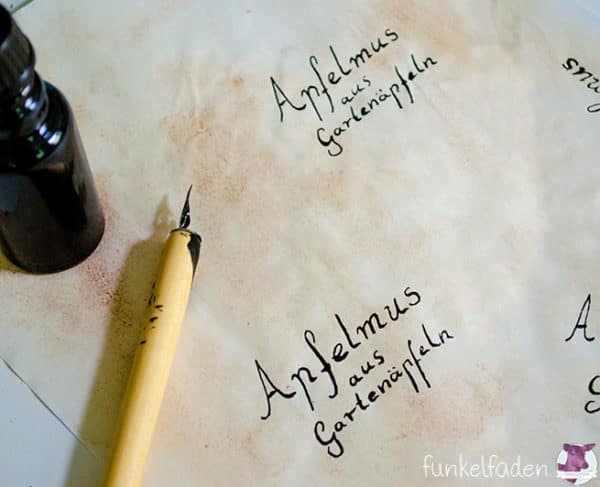 Apfelmus
aus
Gartenäpfeln
Apfelmus
aus
Gartenäpfeln
funkelfaden